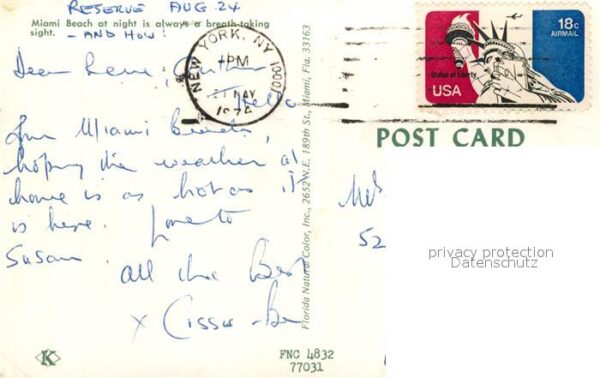 RESERVE AUG 24
Miami Beach at night is always a breath-taking
sight. - AND HOW!
NEW YORK, N.Y. 10001
PM
MAY
1974
18c
AIRMAIL
Statue of Liberty
USA
POST CARD
Dear
Hello
from Miami Beach,
hoping the weather at
home is as hot as it
is here. Love to
Susan.
All the Best
x
Florida Natural Color, Inc., 2652 N.E. 189th St., Miami, Fla. 33163
52
privacy protection
Datenschutz
K
FNC 4832
77031